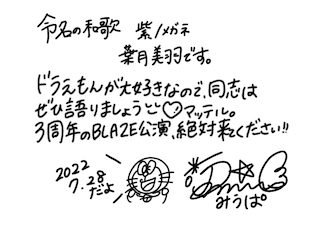 令名の和歌 紫ノメガネ
葉月美羽です。
ドラえもんが大好きなので、同志は
ぜひ語りましょう♡マッテル。
3周年のBLAZE公演、絶対来てください!!
2022
7.28
だよ
みうぱ。